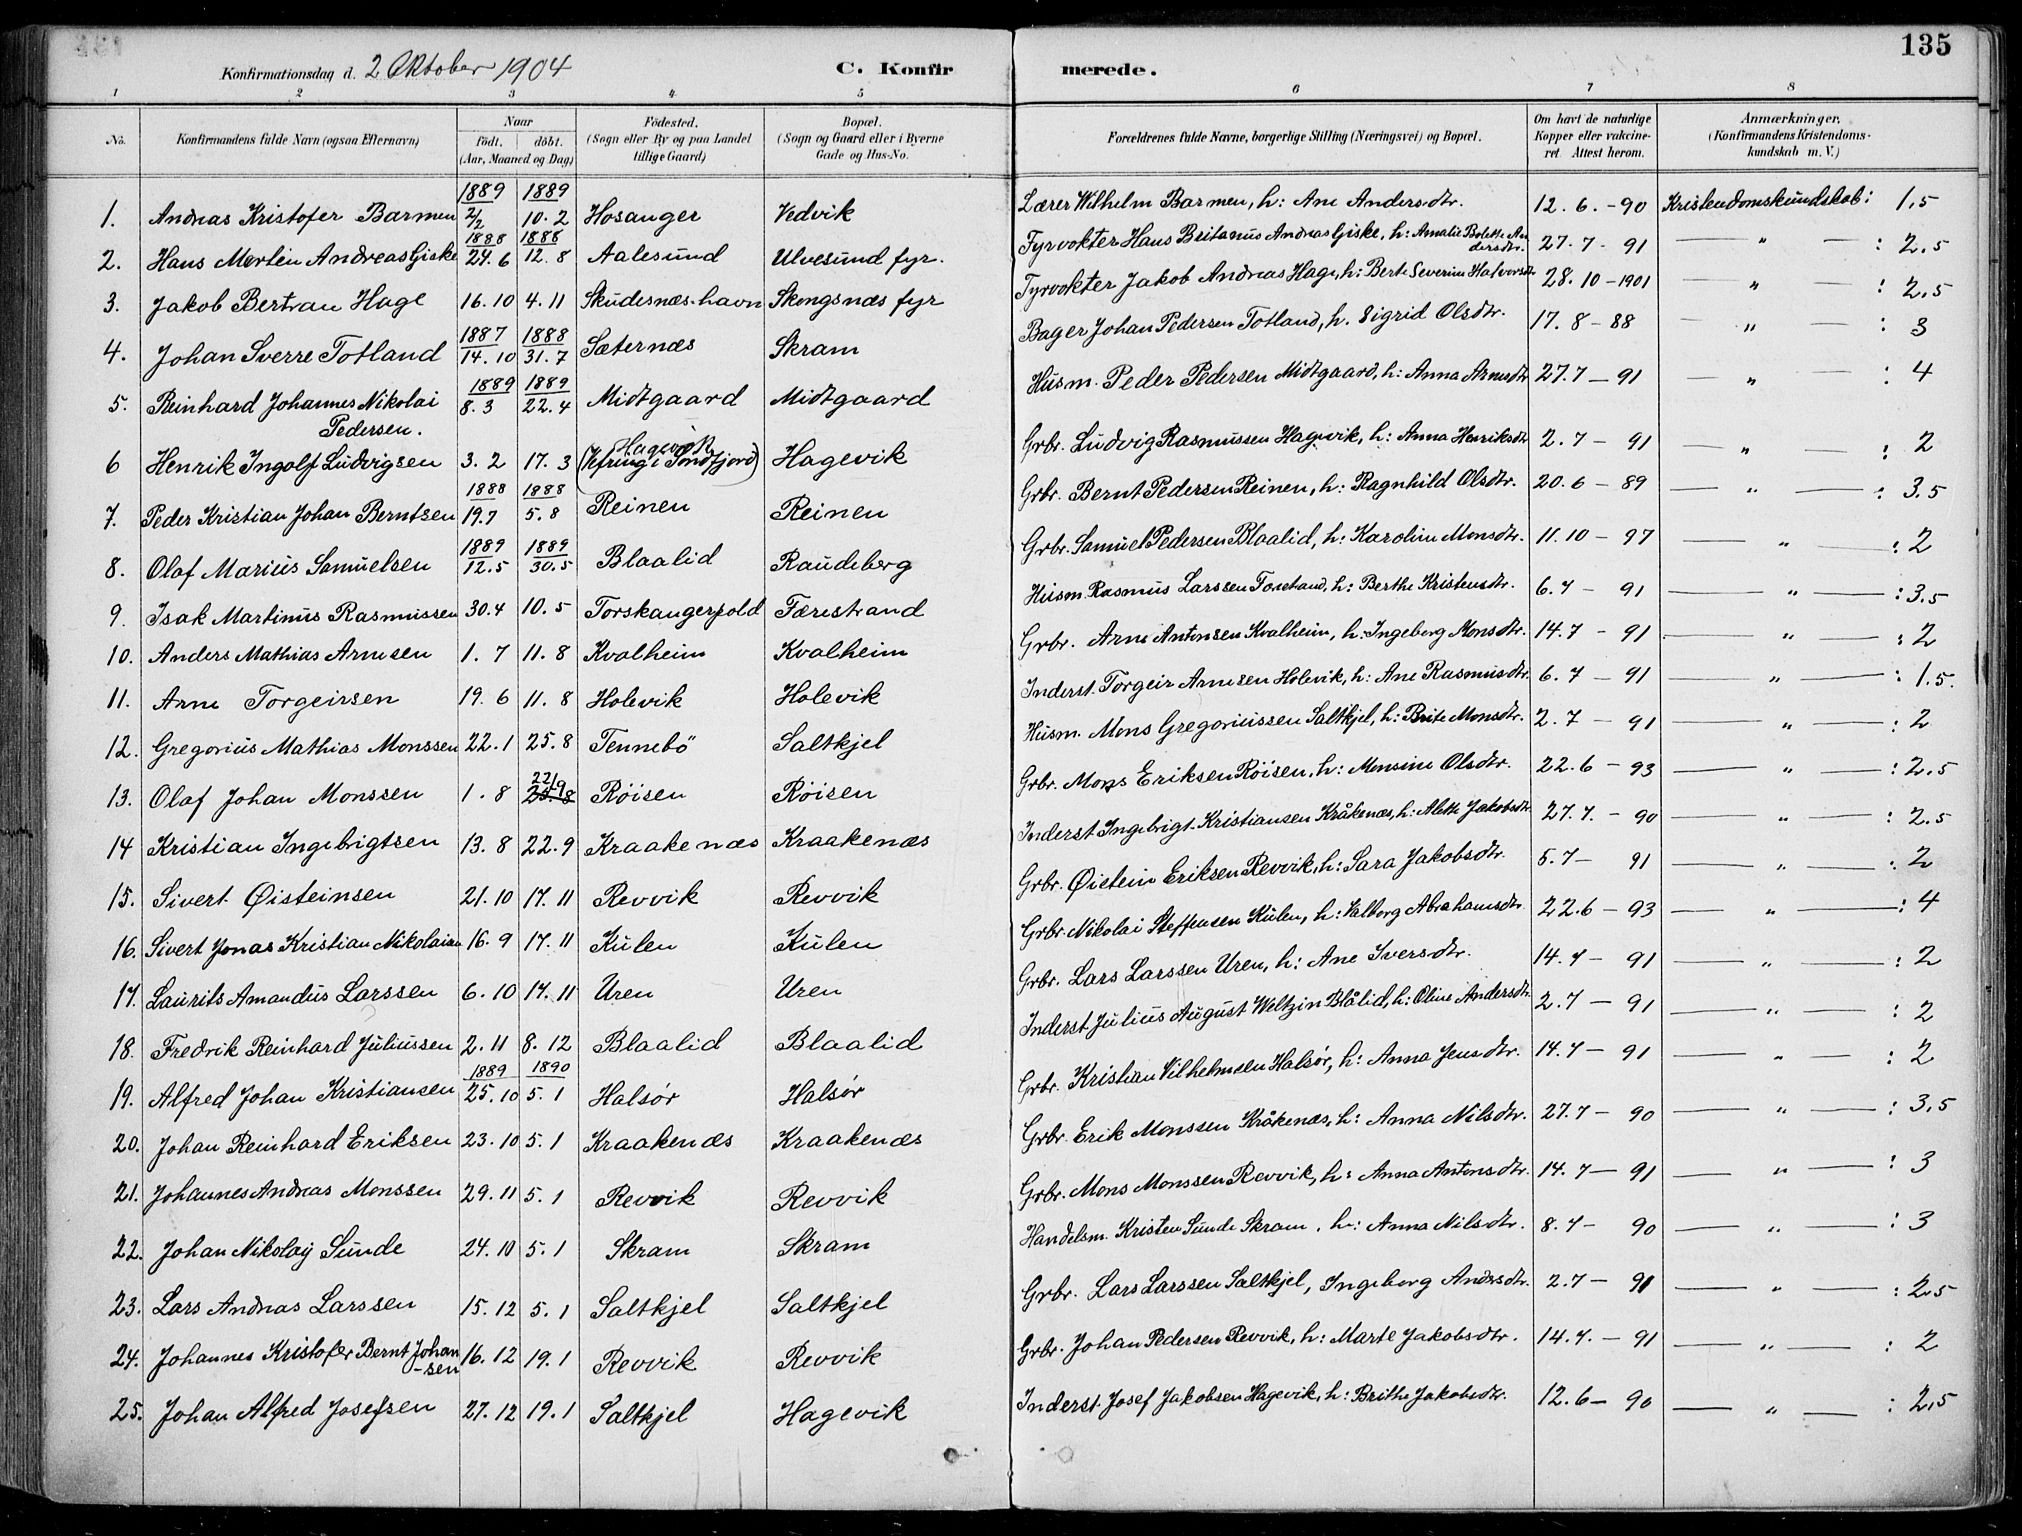 135
Konfirmationsdag d. 2 Oktober 1904 C. Konfirmerede.
1 2 3 4 5 6 7 8
No. Konfirmandens fulde Navn (ogsaa Efternavn) Naar födt. döbt. (Aar, Maaned og Dag) Födested. (Sogn eller By og paa Landet tillige Gaard) Bopæl. (Sogn og Gaard eller i Byerne Gade og Hus-No. Forældrenes fulde Navne, borgerlige Stilling (Næringsvei) og Bopæl. Om havt de naturlige Kopper eller vakcineret. Attest herom. Anmærkninger. (Konfirmandens Kristendomskundskab m. V.)
1889 1889
1. Andreas Kristofer Barmen 2/2 10.2 Hosanger Vedvik Lærer Wilhelm Barmen, h: Ane Andersdtr. 12.6.-90 Kristendomskundskab: 1,5
1888 1888
2. Hans Martin Andreas Giske 24.6 12.8 Aalesund Ulvesund fyr. Fyrvokter Hans Britanus Andreas Giske, h: Amalie Bolette Andersdtr. 27.7-91 — " — : 2,5
3. Jakob Bertran Hage 16.10 4.11 Skudesnæshavn Skongsnæs fyr Fyrvokter Jakob Andreas Hage, h: Berte Severine Halvorsdtr 28.10-1901 — " — : 2,5
1887 1888
4. Johan Sverre Totland 14.10 31.7 Sæternæs Skram Bager Johan Pedersen Totland, h. Sigrid Olsdtr. 17.8-88 — " — : 3
1889 1889
5. Reinhard Johannes Nikolai Pedersen. 8.3 22.4 Midtgaard Midtgaard Husm. Peder Pedersen Midtgaard, h: Anna Arnesdtr 27.7-91 — " — : 4
6 Henrik Ingolf Ludvigsen 3.2 17.3 Hagevik (Vefring i Søndfjord) Hagevik Grbr. Ludvig Rasmussen Hagevik, h: Anna Henriksdtr 2.7-91 — " — : 2
1888 1888
7. Peder Kristian Johan Berntsen 19.7 5.8 Reinen Reinen Grbr. Bernt Pedersen Reinen, h: Ragnhild Olsdtr. 20.6-89 — " — : 3.5
1889 1889
8. Olaf Marius Samuelsen 12.5 30.5 Blaalid Raudeberg Grbr. Samuel Pedersen Blaalid, h: Karoline Monsdtr. 11.10-97 — " — : 2
9. Isak Martinus Rasmussen 30.4 10.5 Torskangerpold Færestrand Husm. Rasmus Larssen, h: Berthe Kristensdtr. 6.7-91 — " — : 3.5
10. Anders Mathias Arnesen 1.7 11.8 Kvalheim Kvalheim Grbr. Arne Antonsen Kvalheim, h: Ingeborg Monsdtr. 14.7-91 — " — : 2
11. Arne Torgeirsen 19.6 11.8 Holevik Holevik Inderst. Torgeir Arnesen Holevik, h: Ane Rasmusdtr 6.7-91 — " — : 1.5.
12. Gregorius Mathias Monssen 22.1 25.8 Tennebö Saltkjel Husm. Mons Gregoriussen Saltkjel, h: Brite Monsdtr. 2.7-91 — " — : 2
13. Olaf Johan Monssen 1.8 22/9 25.8 Røisen Røisen Grbr. Mons Eriksen Røisen, h: Monsine Olsdtr. 22.6-93 — " — : 2,5
14 Kristian Ingebrigtsen 13.8 22.9 Kraakenæs Kraakenæs Inderst Ingebrigt Kristiansen Kråkenæs, h: Alette Jakobsdtr 27.7.-90 — " — : 2.5
15. Sivert Øisteinsen 21.10 17.11 Revvik Revvik Grbr. Øistein Eriksen Revvik, h: Sara Jakobsdtr. 5.7-91 — " — : 2
16. Sivert Jonas Kristian Nikolaisen 16.9 17.11 Kulen Kulen Grbr. Nikolai Steffensen Kulen, h: Valborg Abrahamsdtr. 22.6-93 — " — : 4
17. Laurits Amandus Larssen 6.10 17.11 Uren Uren Grbr. Lars Larssen Uren, h: Ane Iversdtr. 14.7-91 — " — : 2
18. Fredrik Reinhard Juliussen 2.11 8.12 Blaalid Blaalid Inderst Julius August Weltzin Blålid, h: Oline Andersdtr. 2.7-91 — " — : 2
1889 1890
19. Alfred Johan Kristiansen 25.10 5.1 Halsør Halsør Grbr. Kristian Vilhelmsen Halsør, h: Anna Jensdtr. 14.7-91 — " — : 2
20. Johan Reinhard Eriksen 23.10 5.1 Kraakenæs Kraakenæs Grbr. Erik Monssen Kråkenæs, h: Anna Nilsdtr. 27.7-90 — " — : 3,5
21. Johannes Andreas Monssen 29.11 5.1 Revvik Revvik Grbr. Mons Monssen Revvik, h: Anna Antonsdtr. 14.7-91 — " — : 3
22. Johan Nikolay Sunde 24.10 5.1 Skram Skram Handelsm. Kristen Sunde Skram, h: Anna Nilsdtr. 8.7-90 — " — : 3
23. Lars Andreas Larssen 15.12 5.1 Saltkjel Saltkjel Grbr. Lars Larssen Saltkjel, Ingeborg Andersdtr. 2.7-91 — " — : 2,5
24. Johannes Kristofer Bernt Johan-sen 16.12 19.1 Revvik Revvik Grbr. Johan Pedersen Revvik, h: Marte Jakobsdtr. 14.7.-91 — " — : 2
25. Johan Alfred Josefsen 27.12 19.1 Saltkjel Hagevik Inderst. Josef Jakobsen Hagevik, h: Brithe Jakobsdtr. 12.6-90 — " — : 2,5